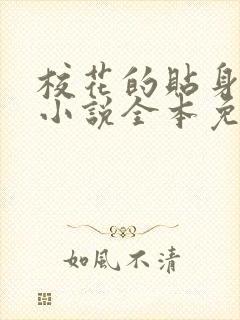 校花的貼身
小說全本免
如風不清